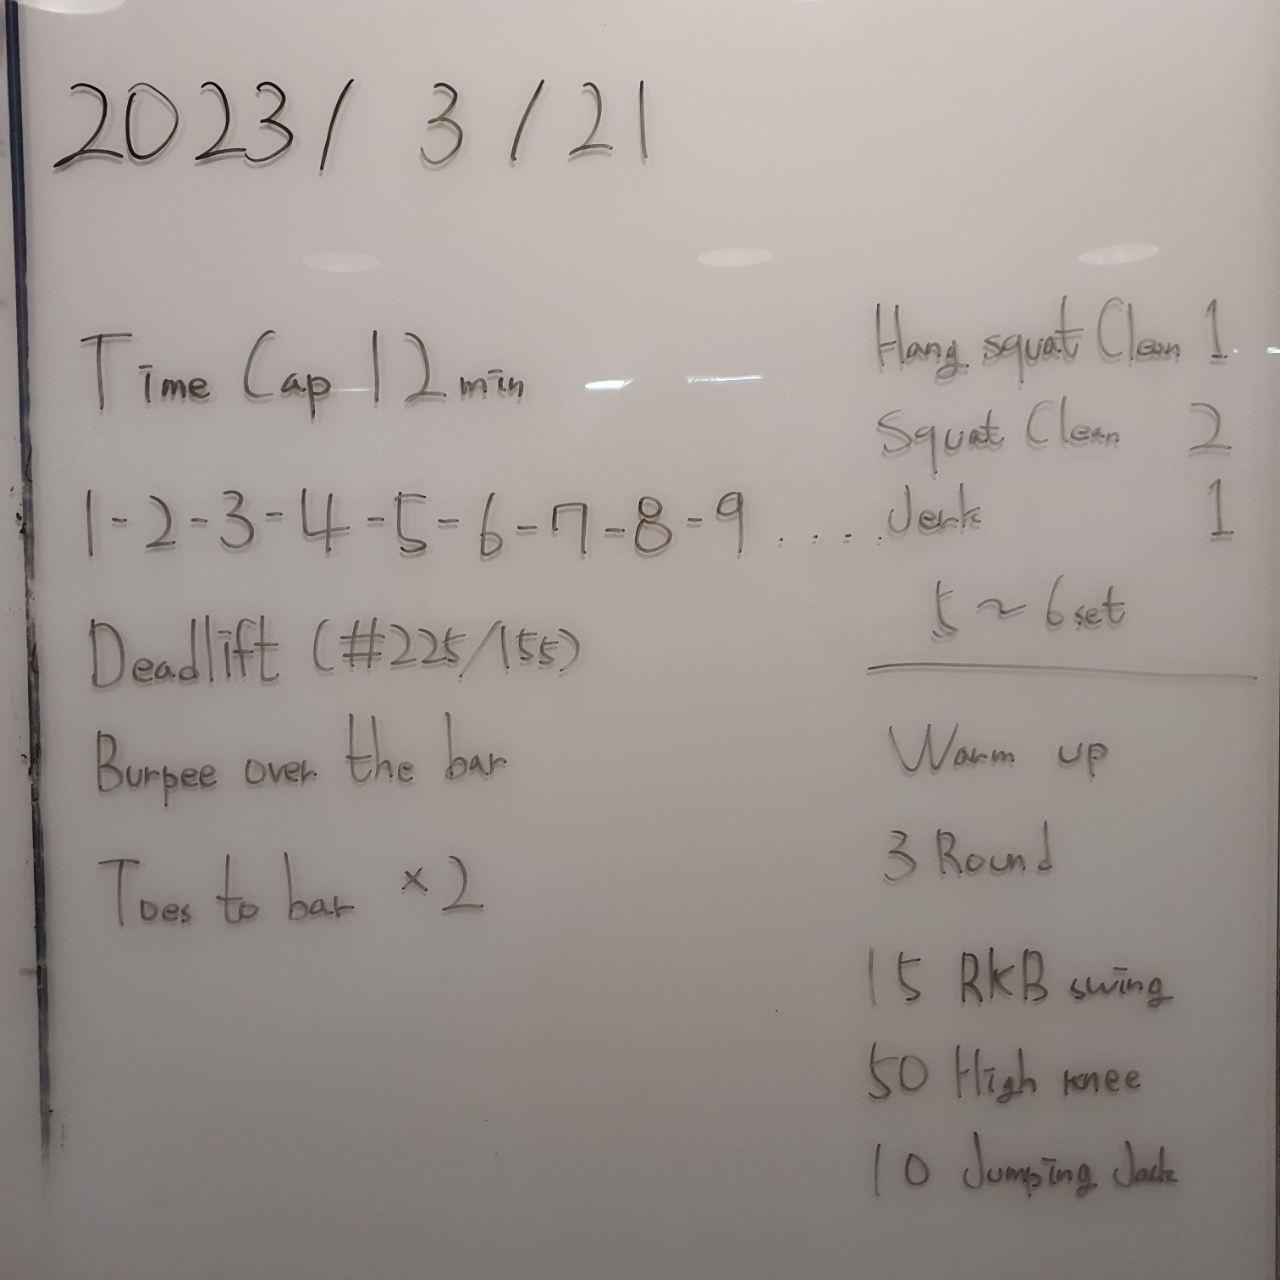 2023/ 3 /21
Time Cap 12 min
1-2-3-4-5-6-7-8-9.....
Deadlift (#225/155)
Burpee over the bar
Toes to bar ×2
Hang squat Clean 1
Squat Clean 2
Jerk 1
5 ~ 6 set
Warm up
3 Round
15 RKB swing
50 High knee
10 Jumping Jack